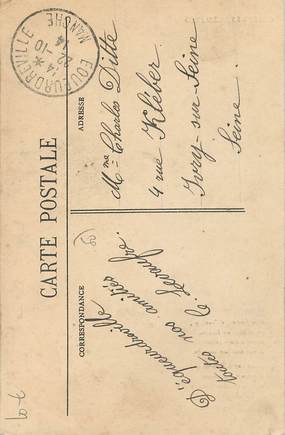 CARTE POSTALE
CORRESPONDANCE
ADRESSE
EQUEURDREVILLE
MANCHE
14 *
22-10
14
D'Equeurdreville
toutes nos amitiés
Mme Charles Ditte
4 rue Kléber
Ivry-sur-Seine
Seine.